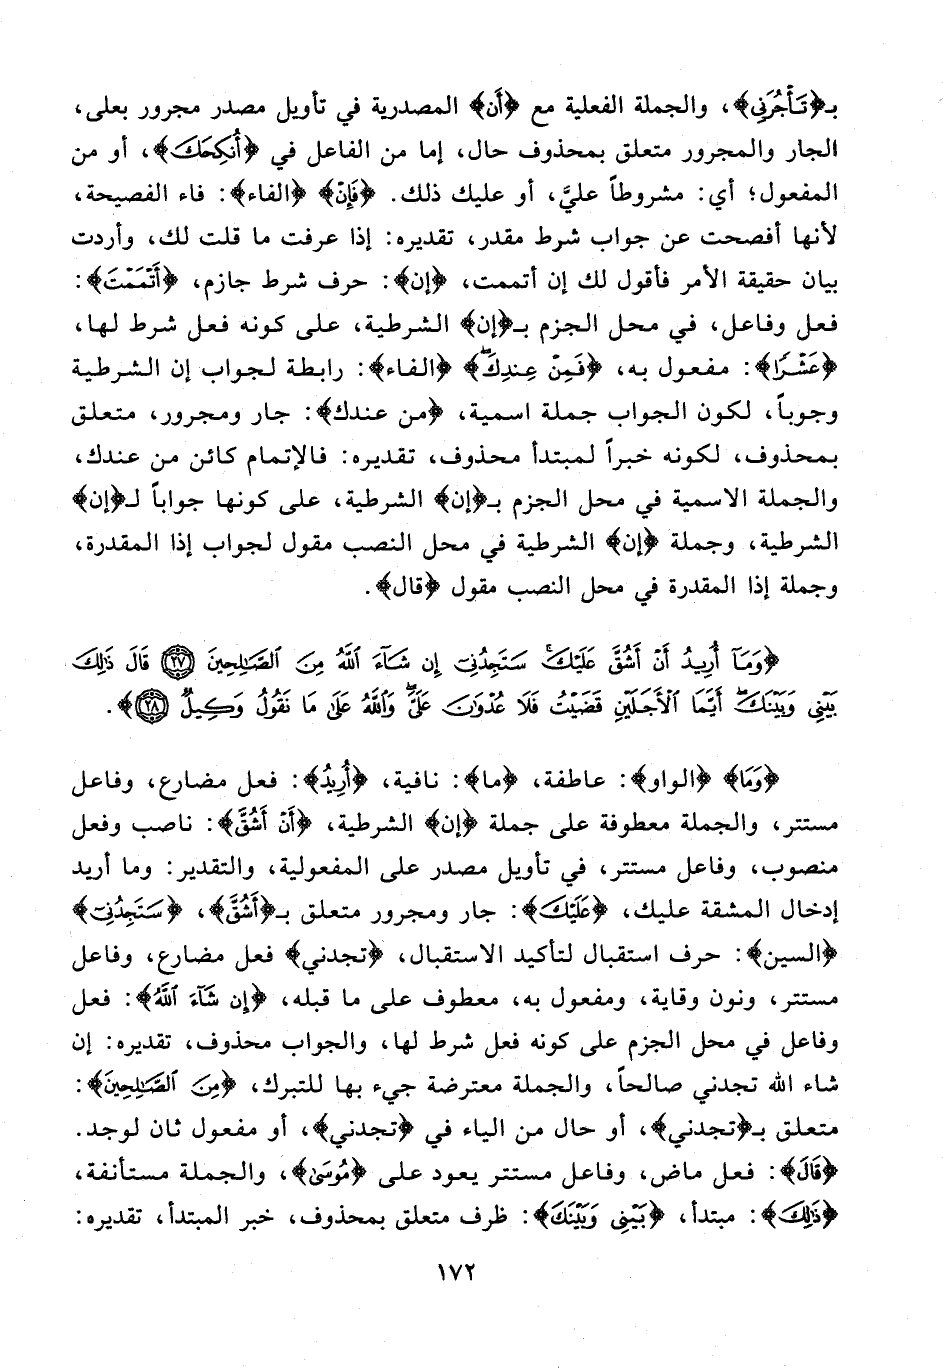 بـ﴿تَأْجُرَنِي﴾، والجملة الفعلية مع ﴿أَن﴾ المصدرية في تأويل مصدر مجرور بعلى،
الجار والمجرور متعلق بمحذوف حال، إما من الفاعل في ﴿أُنكِحَكَ﴾، أو من
المفعول؛ أي: مشروطاً عليَّ، أو عليك ذلك. ﴿فَإِنْ﴾ ﴿الفاء﴾: فاء الفصيحة،
لأنها أفصحت عن جواب شرط مقدر، تقديره: إذا عرفت ما قلت لك، وأردت
بيان حقيقة الأمر فأقول لك إن أتممت، ﴿إن﴾: حرف شرط جازم، ﴿أَتْمَمْتَ﴾:
فعل وفاعل، في محل الجزم بـ﴿إن﴾ الشرطية، على كونه فعل شرط لها،
﴿عَشْرًا﴾: مفعول به، ﴿فَمِنْ عِندِكَ ۖ﴾ ﴿الفاء﴾: رابطة لجواب إن الشرطية
وجوباً، لكون الجواب جملة اسمية، ﴿من عندك﴾: جار ومجرور، متعلق
بمحذوف، لكونه خبراً لمبتدأ محذوف، تقديره: فالإتمام كائن من عندك،
والجملة الاسمية في محل الجزم بـ﴿إن﴾ الشرطية، على كونها جواباً لـ﴿إن﴾
الشرطية، وجملة ﴿إن﴾ الشرطية في محل النصب مقول لجواب إذا المقدرة،
وجملة إذا المقدرة في محل النصب مقول ﴿قال﴾.
﴿وَمَآ أُرِيدُ أَنْ أَشُقَّ عَلَيْكَ ۚ سَتَجِدُنِىٓ إِن شَآءَ ٱللَّهُ مِنَ ٱلصَّـٰلِحِينَ ٢٧ قَالَ ذَٰلِكَ
بَيْنِى وَبَيْنَكَ ۖ أَيَّمَا ٱلْأَجَلَيْنِ قَضَيْتُ فَلَا عُدْوَٰنَ عَلَىَّ ۖ وَٱللَّهُ عَلَىٰ مَا نَقُولُ وَكِيلٌ ٢٨﴾.
﴿وَمَا﴾ ﴿الواو﴾: عاطفة، ﴿ما﴾: نافية، ﴿أُرِيدُ﴾: فعل مضارع، وفاعل
مستتر، والجملة معطوفة على جملة ﴿إن﴾ الشرطية، ﴿أَنْ أَشُقَّ﴾: ناصب وفعل
منصوب، وفاعل مستتر، في تأويل مصدر على المفعولية، والتقدير: وما أريد
إدخال المشقة عليك، ﴿عَلَيْكَ﴾: جار ومجرور متعلق بـ﴿أَشُقَّ﴾، ﴿سَتَجِدُنِىٓ﴾
﴿السين﴾: حرف استقبال لتأكيد الاستقبال، ﴿تجدني﴾ فعل مضارع، وفاعل
مستتر، ونون وقاية، ومفعول به، معطوف على ما قبله، ﴿إِن شَآءَ ٱللَّهُ﴾: فعل
وفاعل في محل الجزم على كونه فعل شرط لها، والجواب محذوف، تقديره: إن
شاء الله تجدني صالحاً، والجملة معترضة جيء بها للتبرك، ﴿مِنَ ٱلصَّـٰلِحِينَ﴾:
متعلق بـ﴿تجدني﴾، أو حال من الياء في ﴿تجدني﴾، أو مفعول ثان لوجد.
﴿قَالَ﴾: فعل ماض، وفاعل مستتر يعود على ﴿مُوسَىٰ﴾، والجملة مستأنفة،
﴿ذَٰلِكَ﴾: مبتدأ، ﴿بَيْنِى وَبَيْنَكَ﴾: ظرف متعلق بمحذوف، خبر المبتدأ، تقديره:
١٧٢